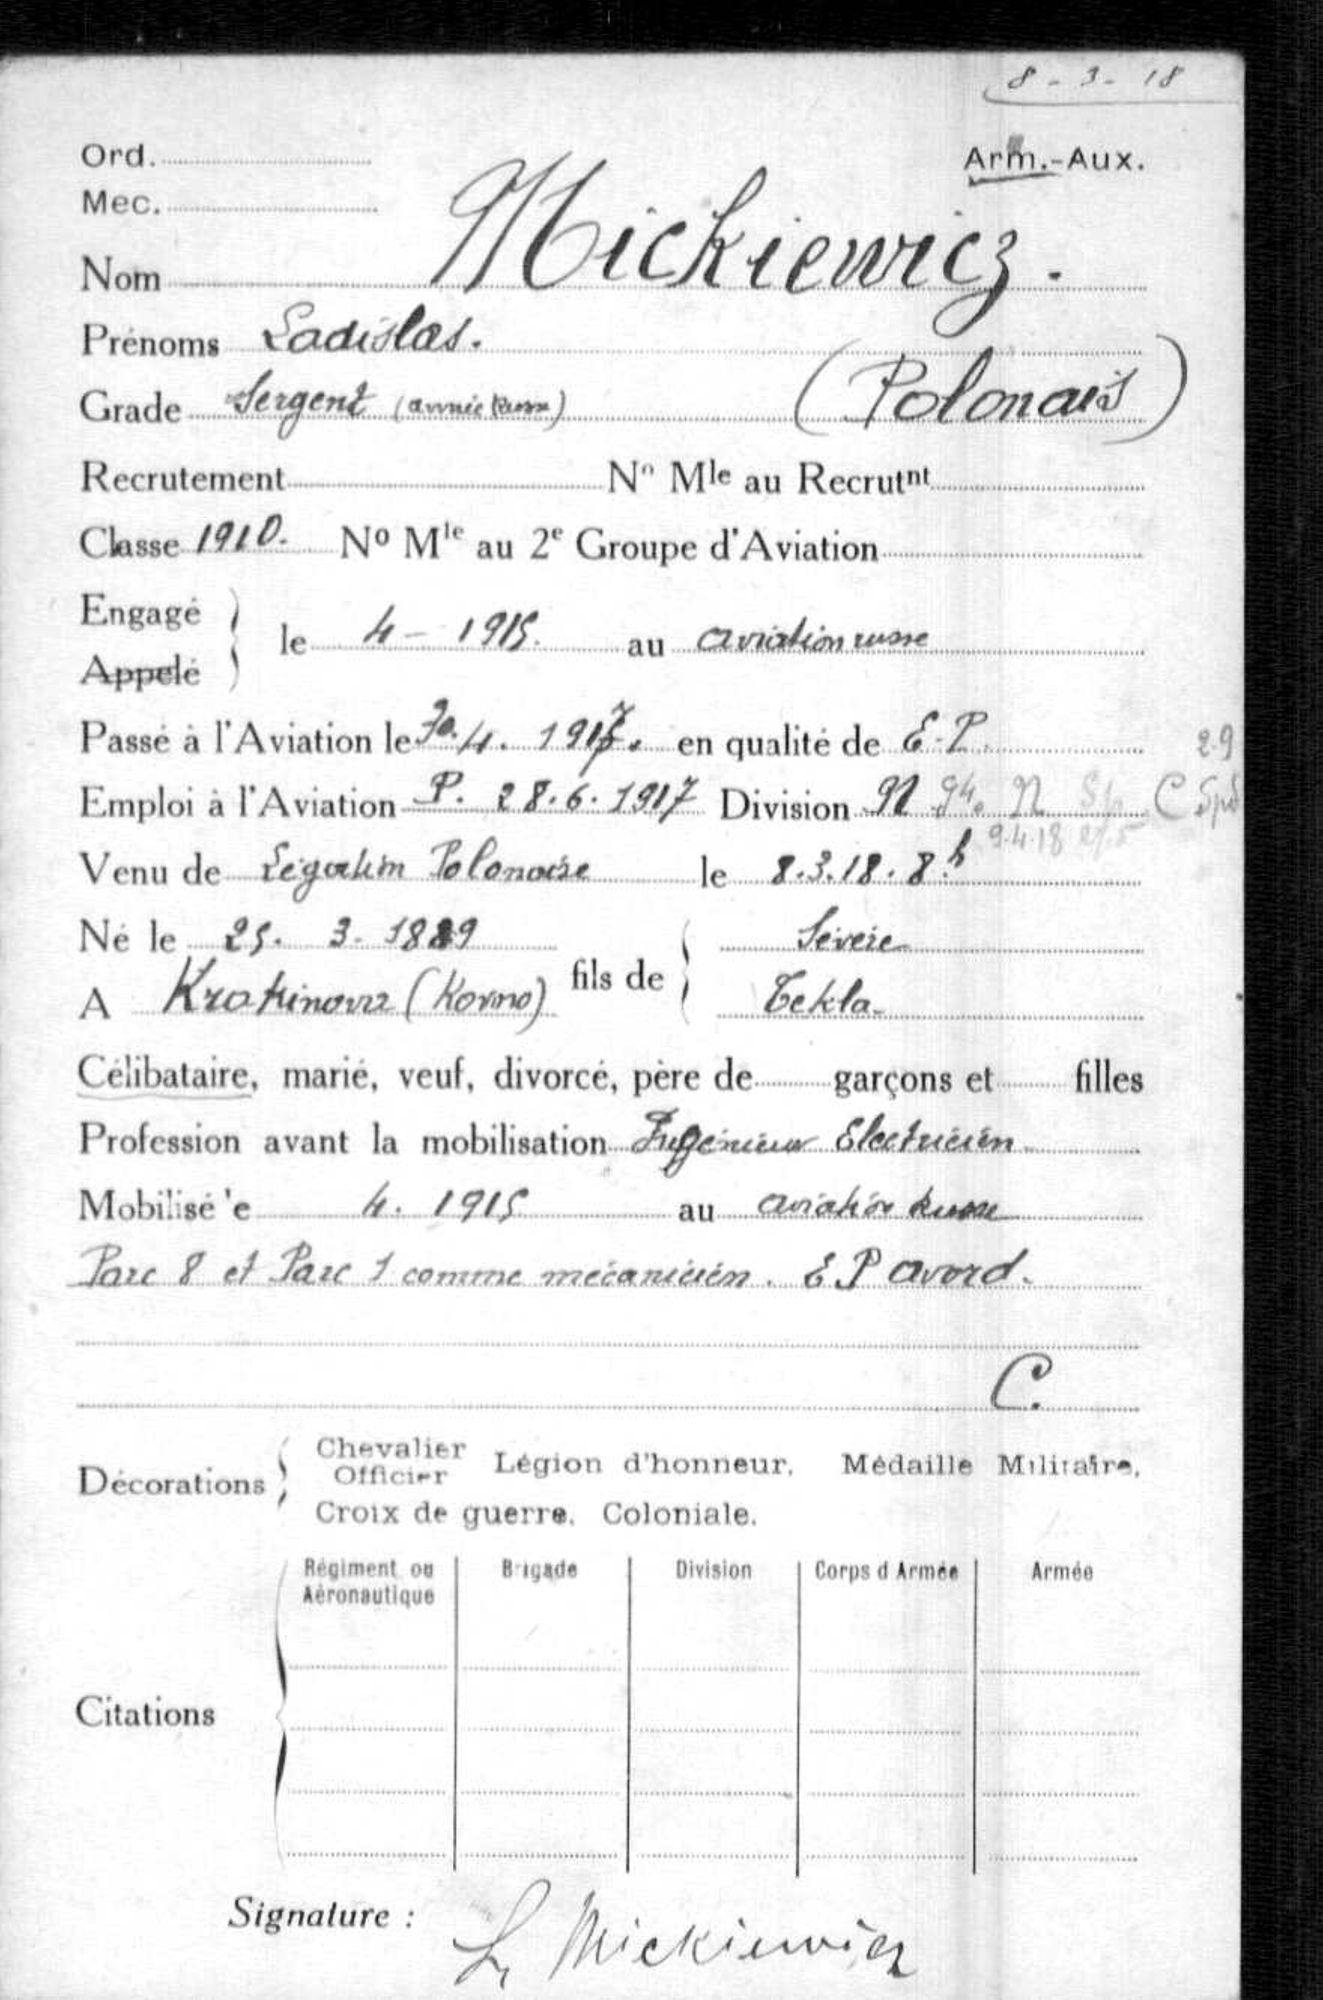 8 - 3 - 18
Ord.
Arm.-Aux.
Mec.
Nom Mickiewicz.
Prénoms Ladislas.
(Polonais)
Grade Sergent (armée Russe)
Recrutement N° Mle au Recrutnt
Classe 1910. N° Mle au 2e Groupe d'Aviation
Engagé
Appelé
le 4 - 1915. au aviation russe
Passé à l'Aviation le 30.4.1917. en qualité de E.P. 2.9
Emploi à l'Aviation P. 28.6.1917 Division N N C Spd
9.4.18
Venu de Légation Polonaise le 8.3.18. 8h
Né le 25. 3. 1889
A (Kovno)
fils de
Tekla
Célibataire, marié, veuf, divorcé, père de garçons et filles
Profession avant la mobilisation Ingénieur Electricien
Mobilisé le 4. 1915 au aviation Russe
Parc 8 et Parc 1 comme mécanicien. E P avord.
C.
Décorations
Chevalier
Officier
Légion d'honneur. Médaille Militaire,
Croix de guerre. Coloniale.
Citations
Régiment ou Aéronautique Brigade Division Corps d Armée Armée
Signature :
L Mickiewicz